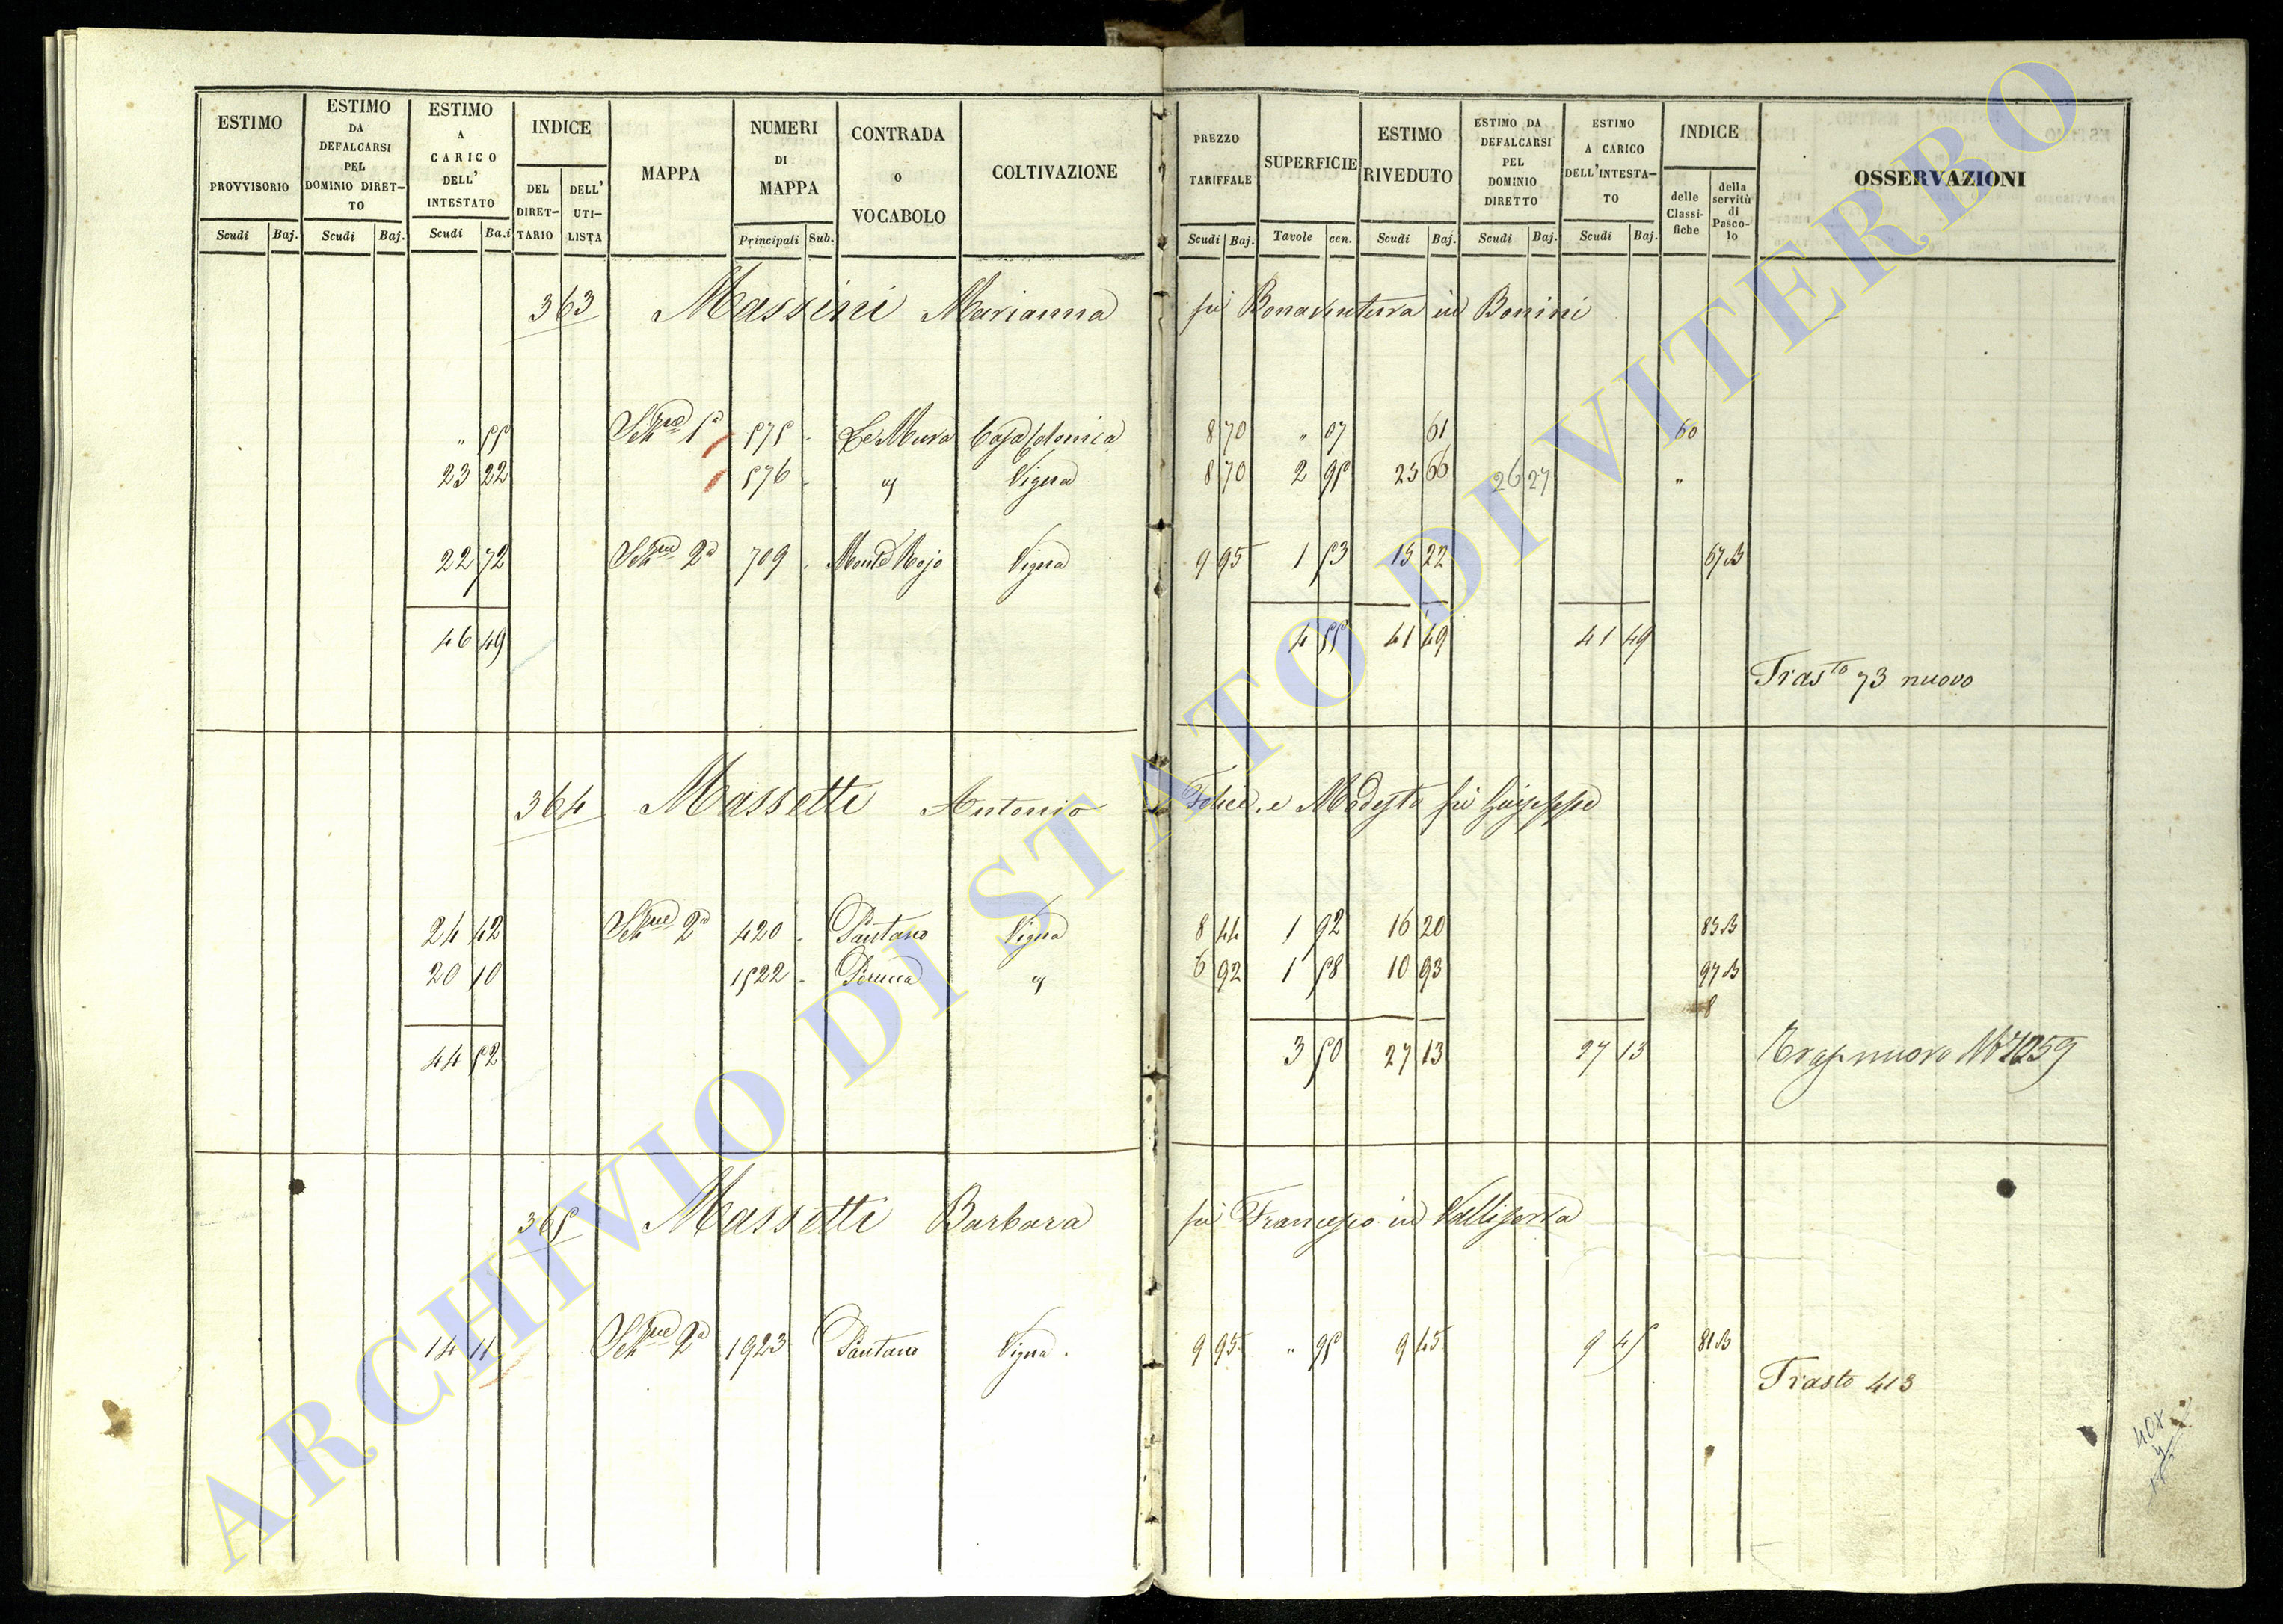 ESTIMO PROVVISORIO
ESTIMO DA DEFALCARSI PEL DOMINIO DIRET-TO
ESTIMO A CARICO DELL' INTESTATO
INDICE
DEL DIRET-TARIO
DELL' UTI-LISTA
MAPPA
NUMERI DI MAPPA
CONTRADA o VOCABOLO
COLTIVAZIONE
PREZZO TARIFFALE
SUPERFICIE
ESTIMO RIVEDUTO
ESTIMO DA DEFALCARSI PEL DOMINIO DIRETTO
ESTIMO A CARICO DELL'INTESTA-TO
INDICE
delle Classi-fiche
della servitù di Pasco-lo
OSSERVAZIONI
Scudi Baj. Scudi Baj. Scudi Ba.i Principali Sub. Scudi Baj. Tavole cen. Scudi Baj. Scudi Baj. Scudi Baj.
363 Massini Marianna fu Bonaventura in Bonini
" 55 1ª 575 - Le Mura Casa Colonica 8 70 " 07 61 60
23 22 576 - Vigna 8 70 2 95 25 66 26 27 "
22 72 2ª 709 - Vigna 9 95 1 53 15 22 67 B
46 49 4 55 41 49 41 49
Trasto 73 nuovo
364 Massetti Antonio Felice, e Modesta fu Giuseppe
24 42 2ª 420 - Pantano Vigna 8 44 1 92 16 20 83 B
20 10 1522 - 6 92 1 58 10 93 97 B
8
44 52 3 50 27 13 27 13
nuovo
365 Massetti Barbara fu Francesco in
14 11 2ª 1923 Pantano Vigna 9 95 " 95 9 45 9 45 81 B
Trasto 413
ARCHIVIO DI STATO DI VITERBO